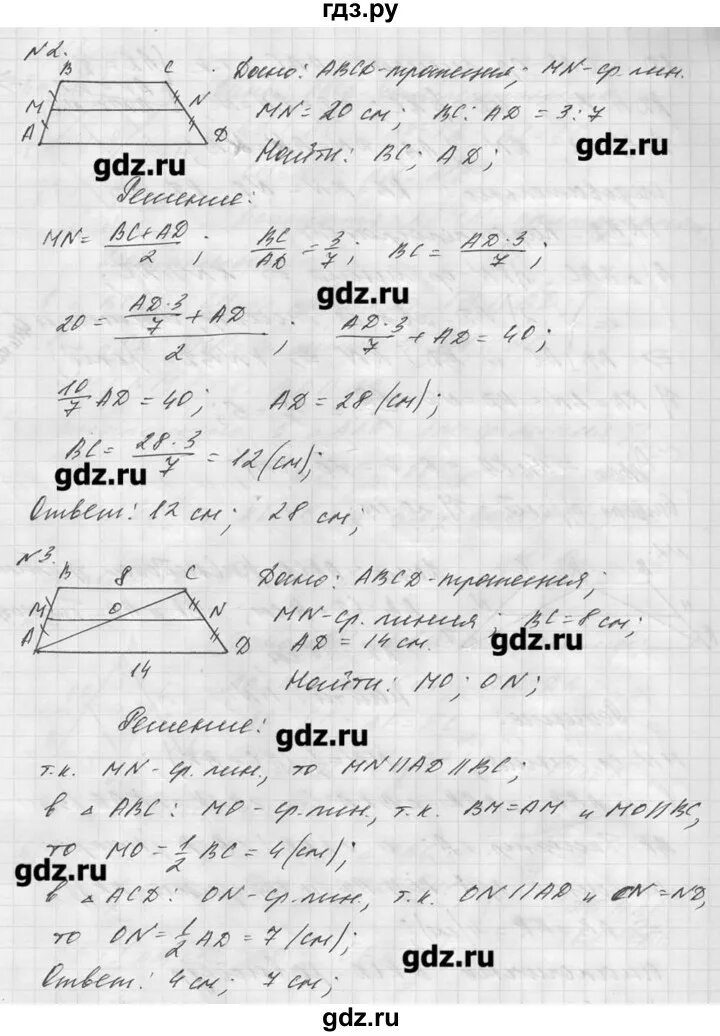 гдз.ру
№2.
B C
M N
A D
Дано: ABCD-трапеция; MN-ср. лин.
MN = 20 см; BC : AD = 3 : 7
Найти: BC; AD;
gdz.ru
gdz.ru
Решение:
MN = (BC + AD)/2; BC/AD = 3/7; BC = (AD · 3)/7;
gdz.ru
20 = ((AD · 3)/7 + AD)/2; (AD · 3)/7 + AD = 40;
10/7 AD = 40; AD = 28 (см);
BC = (28 · 3)/7 = 12 (см);
gdz.ru
Ответ: 12 см; 28 см;
№3.
B 8 C
M O N
A D
14
Дано: ABCD-трапеция;
MN-ср. линия; BC = 8 см;
gdz.ru
AD = 14 см.
Найти: MO; ON;
Решение:
gdz.ru
т.к. MN-ср. лин., то MN||AD||BC;
в △ ABC: MO-ср. лин., т.к. BM=AM и MO||BC,
то MO = 1/2 BC = 4 (см);
gdz.ru
в △ ACD: ON-ср. лин., т.к. ON||AD и CN=ND,
то ON = 1/2 AD = 7 (см);
gdz.ru
Ответ: 4 см; 7 см;
gdz.ru